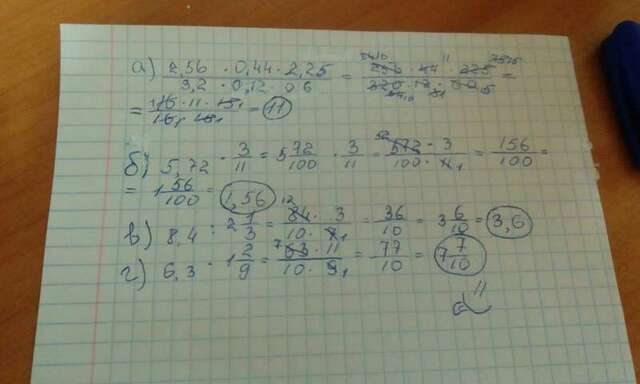 а) 2,56 · 0,44 · 2,25 / 3,2 · 0,12 · 0,6 = 256 · 44 · 225 / 320 · 12 · 60 =
= 16 · 11 · 15 / 16 · 15 = 11
б) 5,72 · 3/11 = 5 72/100 · 3/11 = 572 · 3 / 100 · 11 = 156/100 =
= 1 56/100 = 1,56
в) 8,4 : 2 1/3 = 84 · 3 / 10 · 7 = 36/10 = 3 6/10 = 3,6
г) 6,3 · 1 2/9 = 63 · 11 / 10 · 9 = 77/10 = 7 7/10